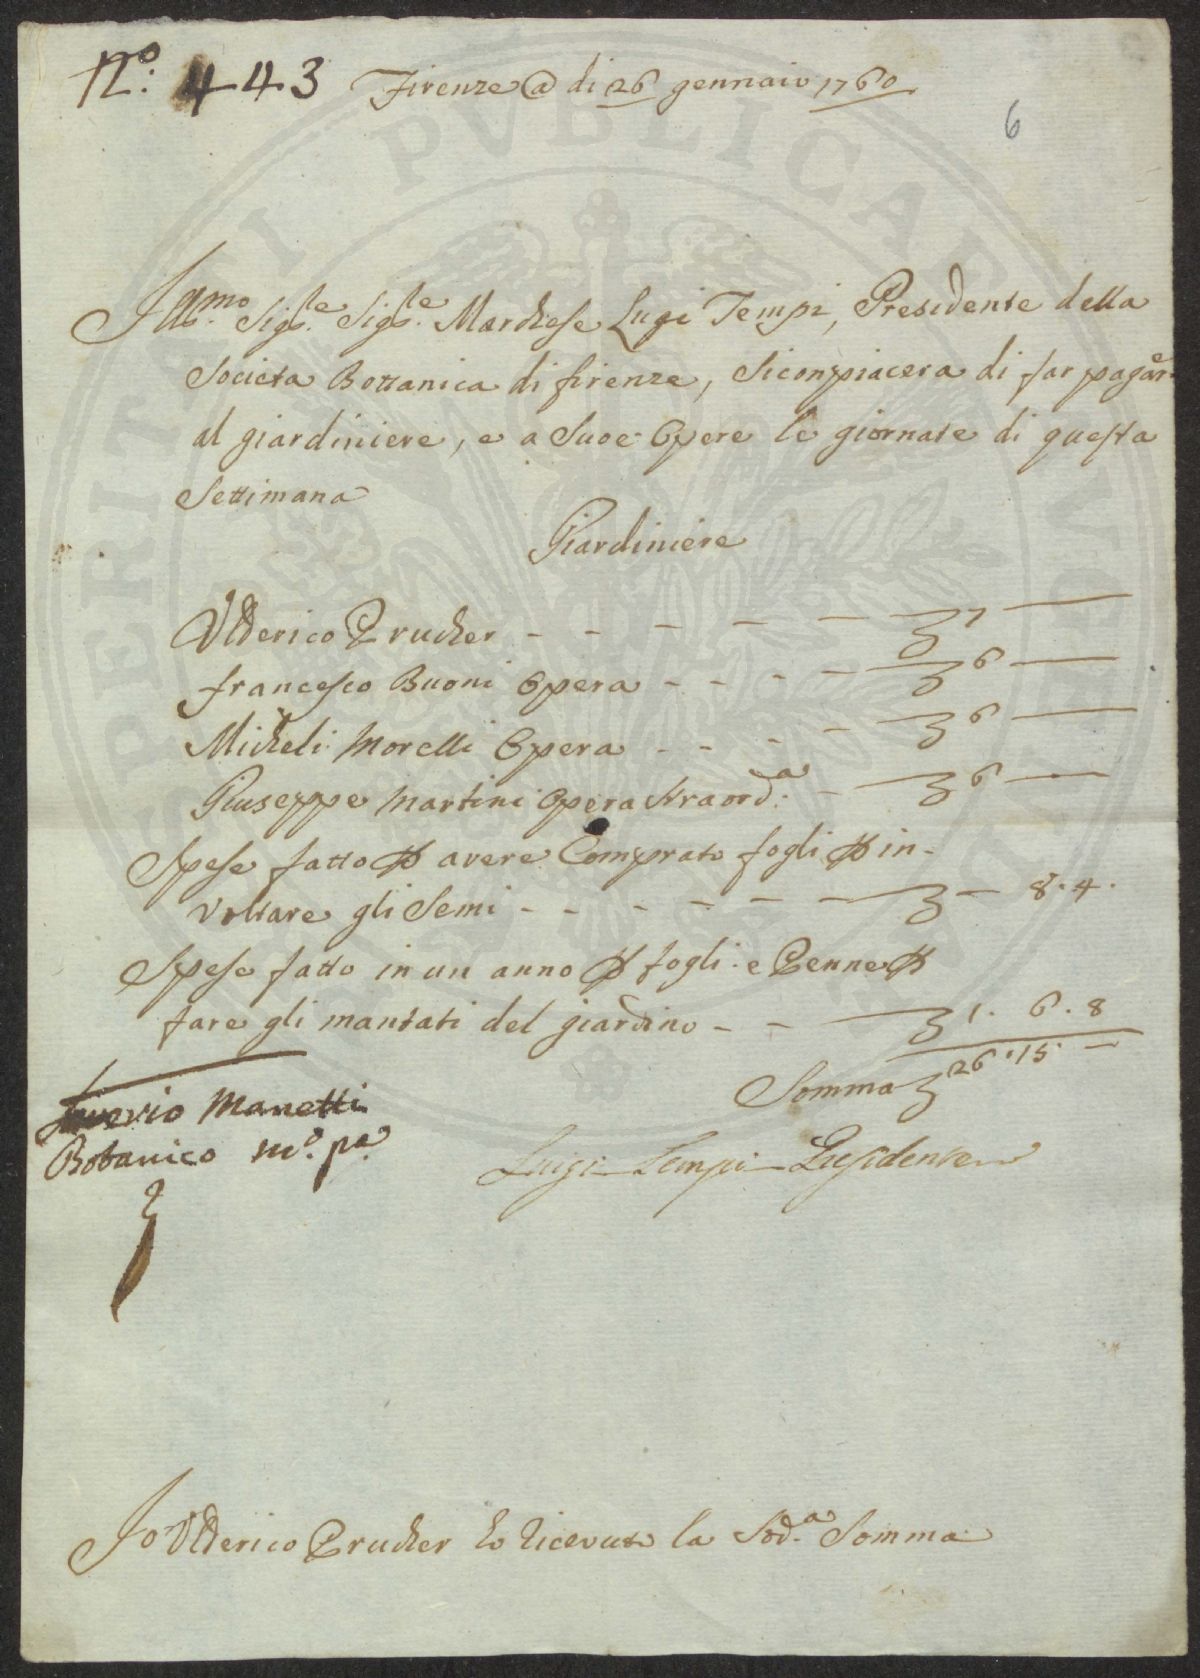 N.º 443 Firenze @ di 26 gennaio 1760
6
Ill.mo Sig.le Sig.le Marchese Lugi Tempi, Presidente della
Societa Bottanica di firenze, Si conpiacera di far pagare
al giardiniere, e a Suoe Opere le giornate di questa
Settimana
Giardiniere
Ulderico Prucher - - - - - 7 —
francesco Buoni Opera - - - - 6 —
Micheli Morelli Opera - - - - 6 —
Giuseppe Martini Opera straord.a - 6 —
Spese fatto p avere Comprato fogli p in-
voltare gli Semi - - - - - - — 8.4.
Spese fatto in un anno p fogli e Penne p
fare gli mantati del giardino - - 1. 6. 8
Somma 26.15. —
Saverio Manetti
Botanico m.º p.a
Luigi Tempi Presidente
Io Ulderico Prucher ho ricevuto la Sod.a Somma
PVBLICAE